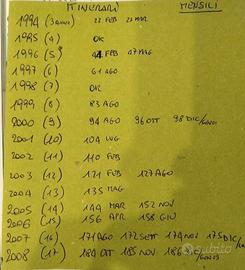 ITINERARI MENSILI
1994 (3ANNO) 22 FEB 23 MAR
1995 (4) OK
1996 (5) 41 FEB 47 MAG
1997 (6) 61 AGO
1998 (7) OK
1999 (8) 83 AGO
2000 (9) 94 AGO 96 OTT 98 DIC/GENN
2001 (10) 104 LUG
2002 (11) 110 FEB
2003 (12) 121 FEB 127 AGO
2004 (13) 135 MAG
2005 (14) 144 MAR 152 NOV
2006 (15) 156 APR 158 GIU
2007 (16) 171 AGO 172 SETT 174 NOV 175 DIC/GENN
2008 (17) 184 OTT 185 NOV 186
subito